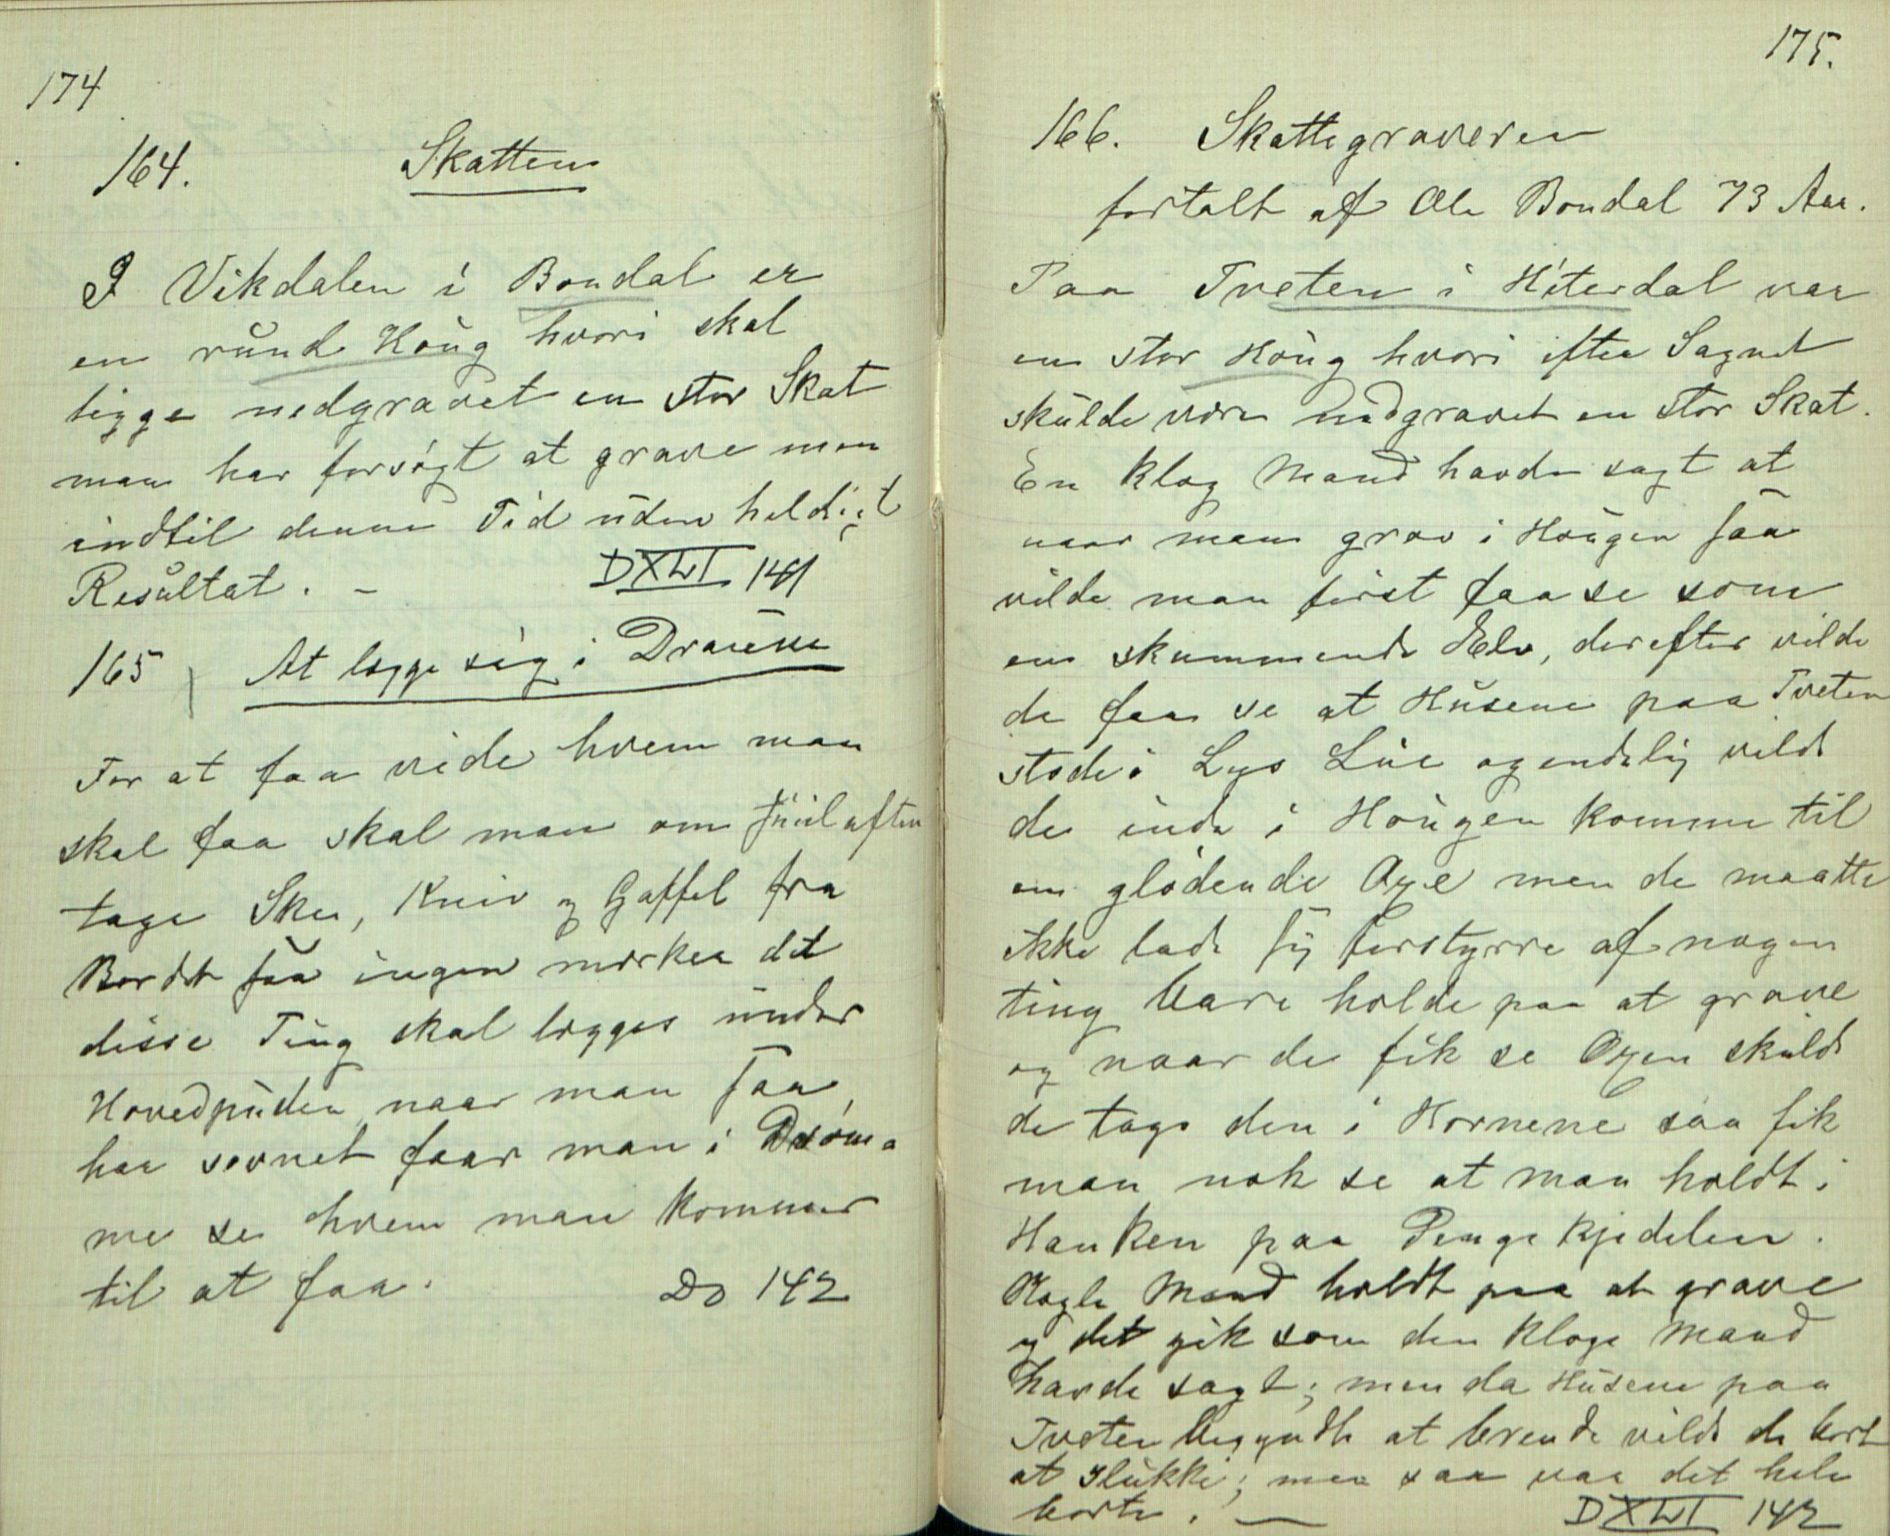 174
164. Skatten
I Vikdalen i Bondal er
en rund Houg hvori skal
ligge nedgravet en stor Skat
man har forsøgt at grave men
indtil denne Tid uden heldigt
Resultat. -
DXLI 141
165 At lægge sig i Draume
For at faa vide hvem man
skal faa skal man om Juulaften
tage Ske, Kniv og Gaffel fra
Bordet saa ingen mærker det
disse Ting skal lægges under
Hovedpuden naar man saa
har sovnet faar man i Drøm
me se hvem man kommer
til at faa.
Do 142
175.
166. Skattegraveren
fortalt af Ole Bondal 73 Aar.
Paa Tveten i Hiterdal var
en stor Houg hvori efter Sagnet
skulde være nedgravet en stor Skat.
En klog Mand havde sagt at
naar man grov i Hougen saa
vilde man først faa se som
en skummende Elv, derefter vilde
de faa se at Husene paa Tveten
stode i Lys Lue og endelig vilde
de inde i Hougen komme til
en glødende Oxe men de maatte
ikke lade sig forstyrre af nogen
ting bare holde paa at grave
og naar de fik se Oxen skulde
de tage den i Hornene saa fik
man nok se at man holdt i
Hanken paa Pengekjedelen.
Nogle Mænd holdt paa at grave
og det gik som den kloge Mand
havde sagt; men da Husene paa
Tveten begyndte at brende vilde de bort
at slukke; men saa var det hele
borte. -
DXLI 142